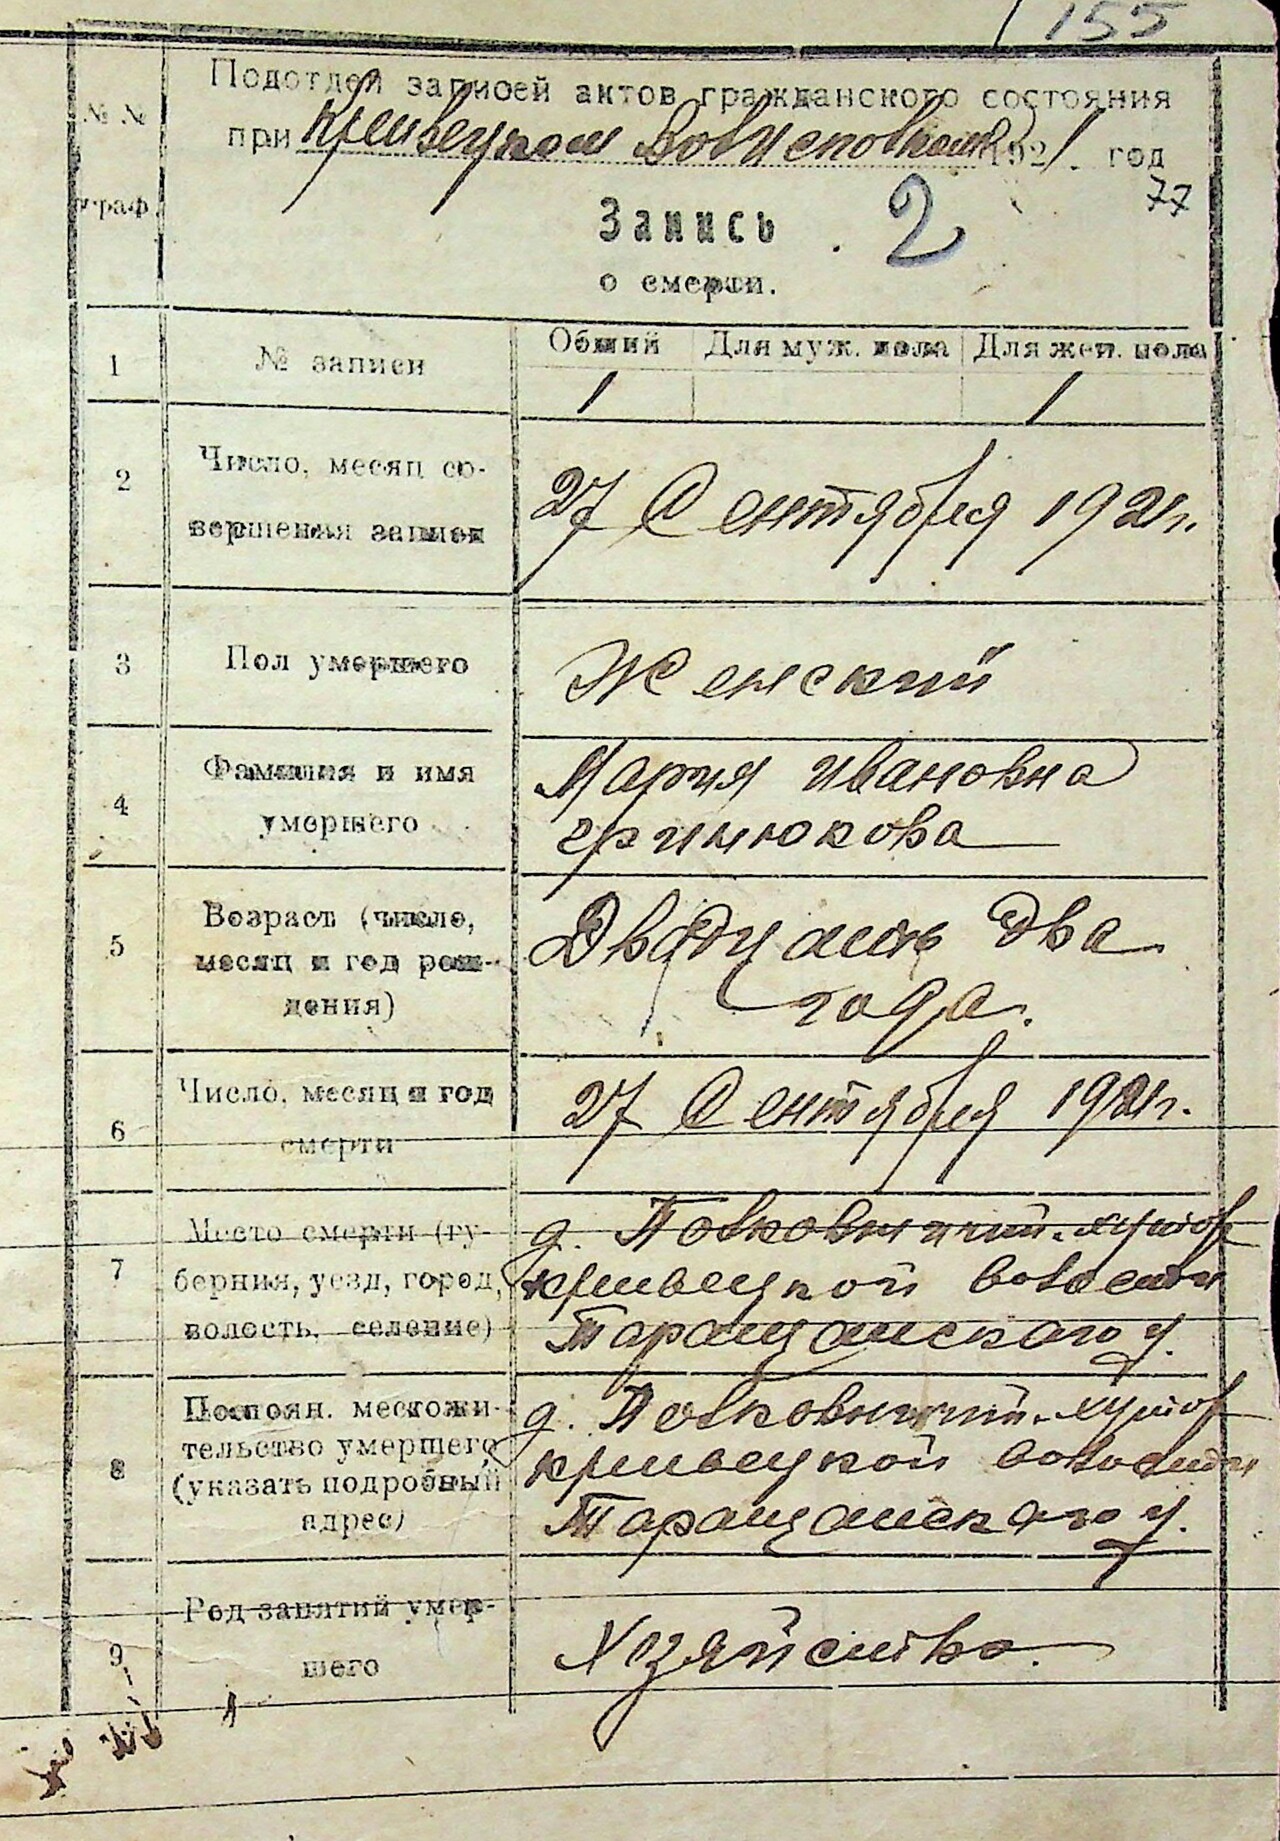 155
Подотдел записей актов гражданского состояния
при Кривецком Волисполкоме 1921. год
77
№ №
граф.
Запись 2
о смерти.
1 № записи Общий Для муж. пола Для жен. пола
1 1
2 Число, месяц со-
вершения записи
27 Сентября 1921 г.
3 Пол умершего Женский
4 Фамилия и имя
умершего
Мария Ивановна
Гринюкова
5 Возраст (число,
месяц и год рож-
дения)
Двадцать два
года.
6 Число, месяц и год
смерти
27 Сентября 1921 г.
7 Место смерти (гу-
берния, уезд, город,
волость, селение)
д. Полковничий-хутор
Кривецкой волости
Таращанского у.
8 Постоян. местожи-
тельство умершего
(указать подробный
адрес)
д. Полковничий-хутор
Кривецкой волости
Таращанского у.
9 Род занятий умер-
шего
Хозяйство.